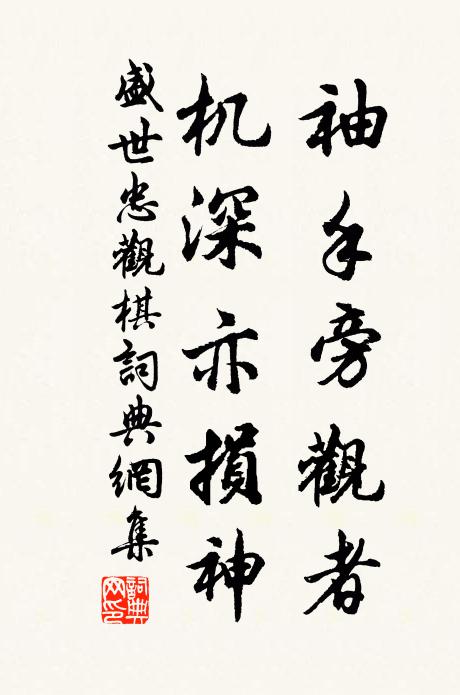 袖手旁觀者
机深亦損神
盛世忠觀棋詞典網集
詞典網印